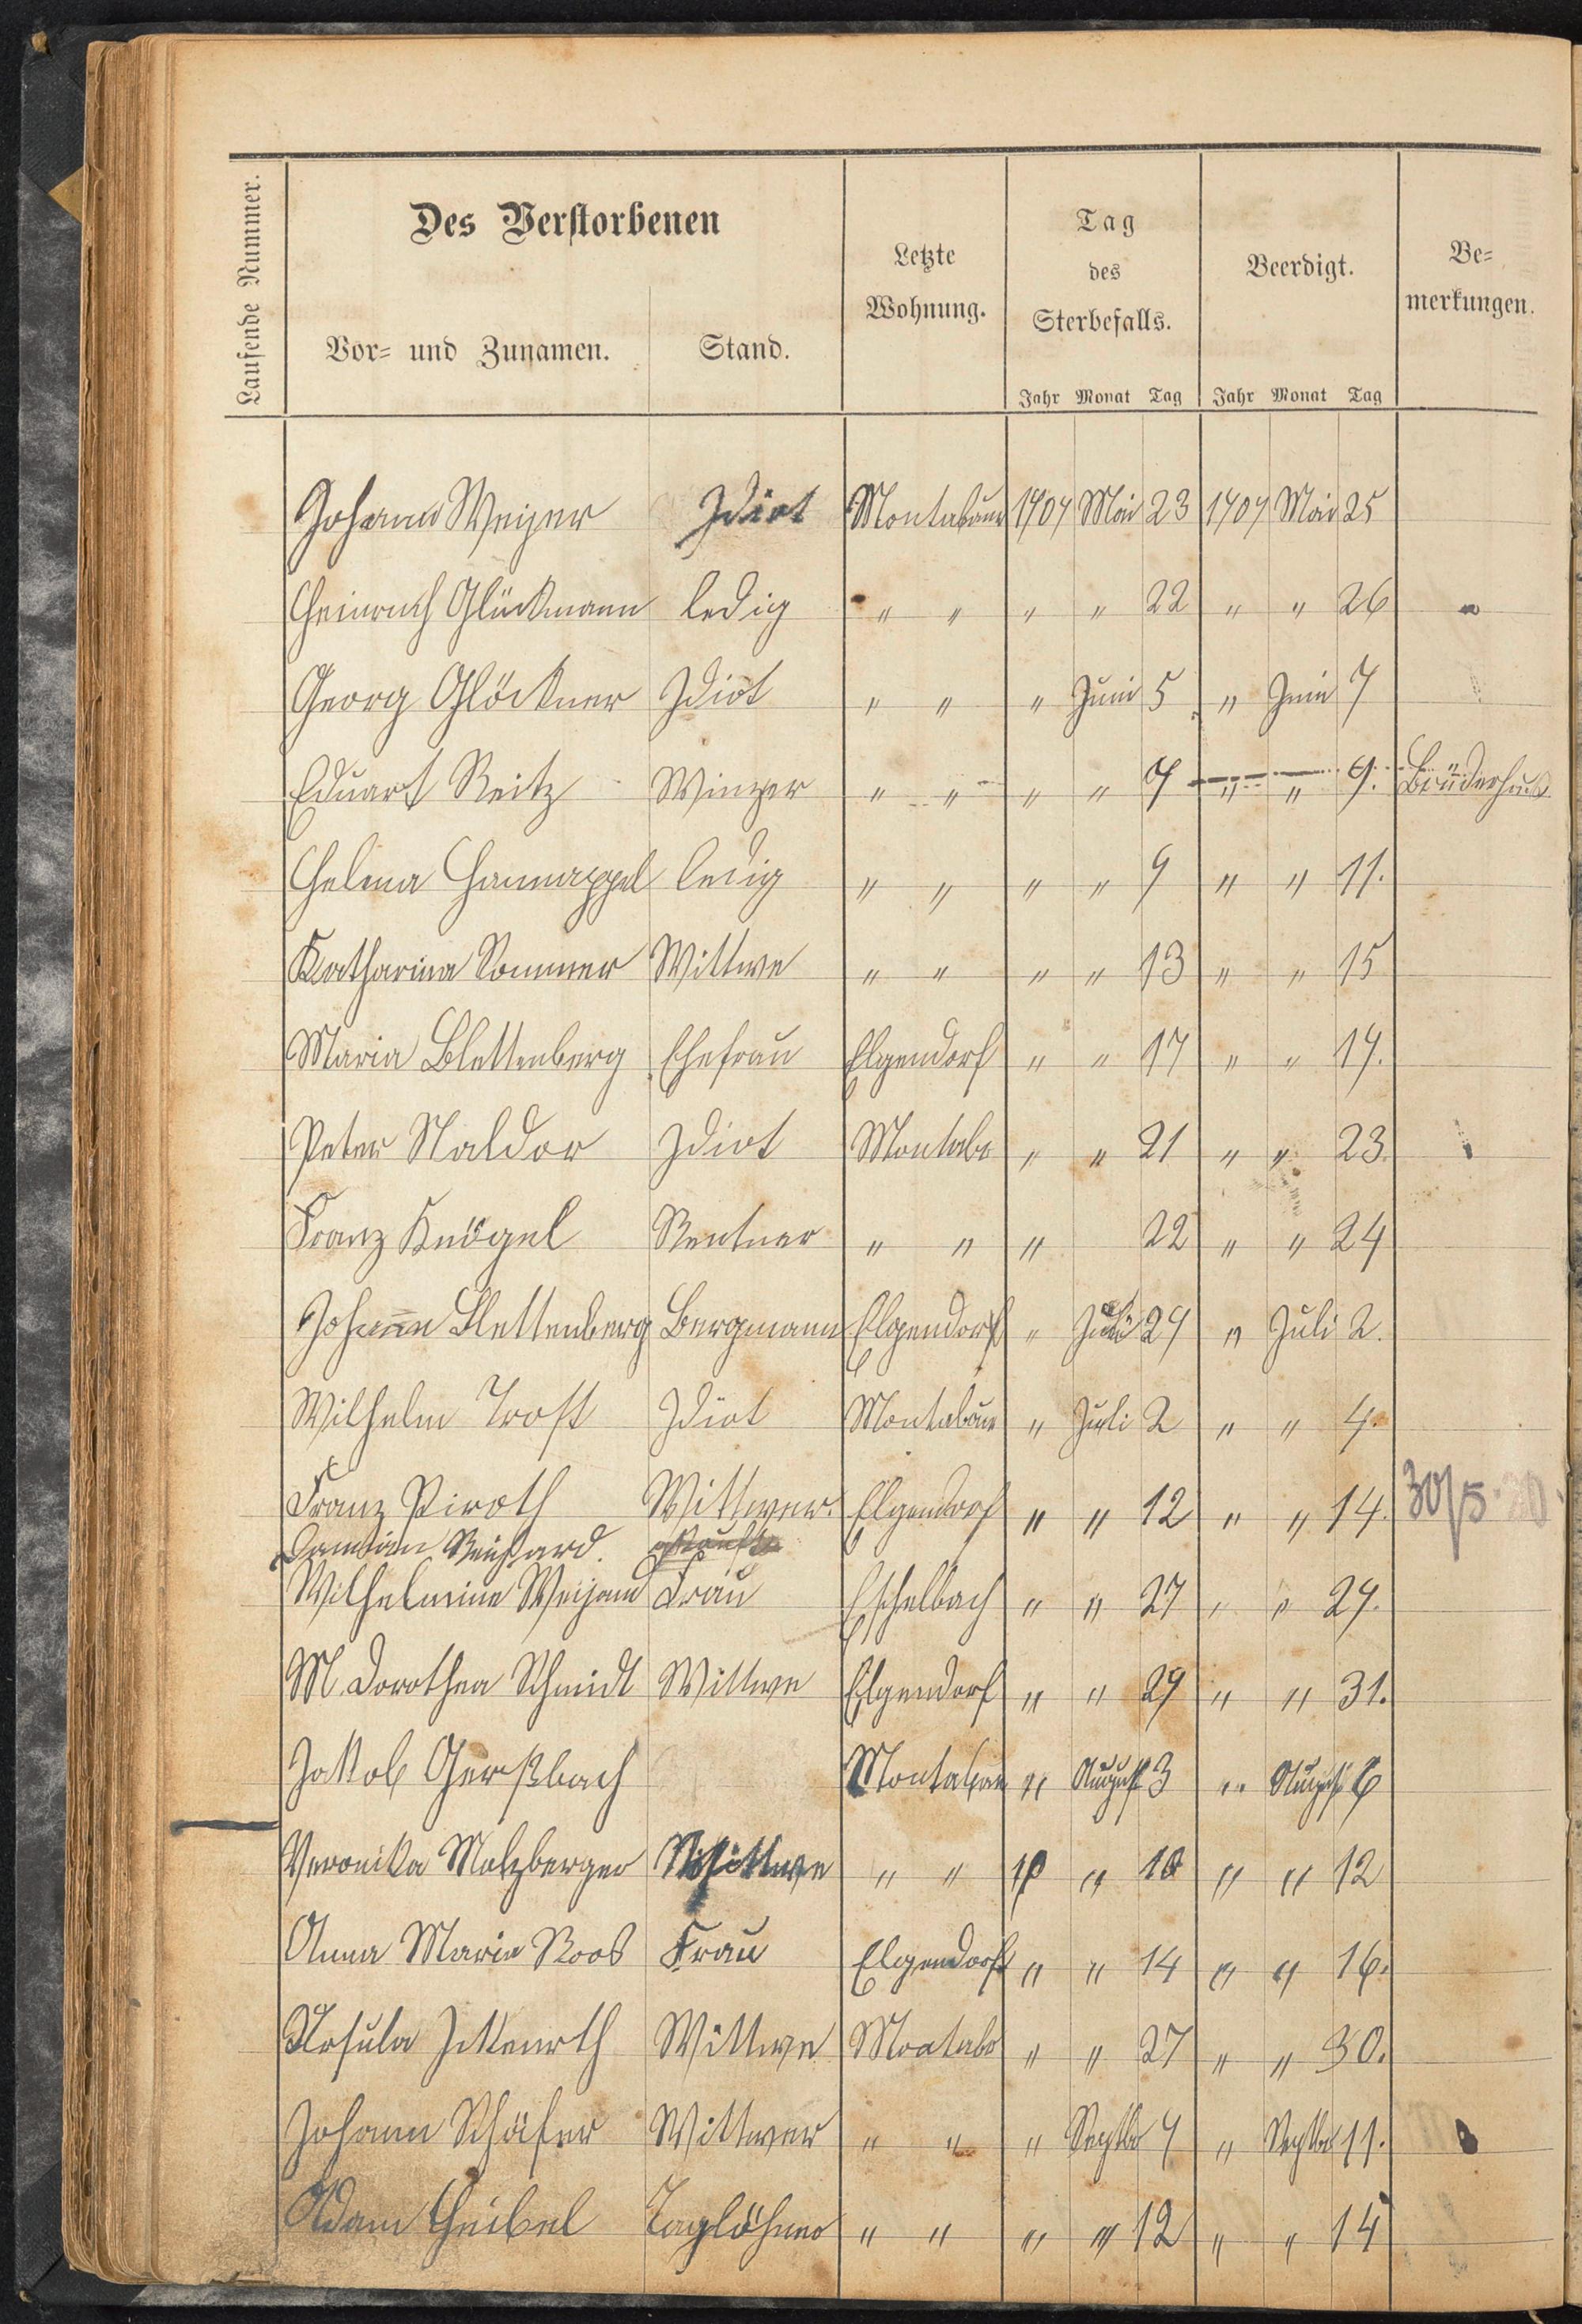 Laufende Nummer.
Des Verstorbenen
Vor- und Zunamen.
Stand.
Letzte
Wohnung.
Tag
des
Sterbefalls.
Beerdigt.
Be-
merkungen.
Jahr Monat Tag Jahr Monat Tag
Johann Weizer Idiot Montabaur 1907 Mai 23 1907 Mai 25
Heinrich Glückmann ledig " " " " 22 " " 26
Georg Glöckner Idiot " " " Juni 5 " Juni 7
Eduart Reitz Winzer " " " " 7 " " 9. Brüderhaus
Helena Hannappel ledig " " " " 9 " " 11.
Katharina Sommer Wittwe " " " " 13 " " 15
Maria Blettenberg Ehefrau Elgendorf " " 17 " " 19.
Peter Staldor Idiot Montab " " 21 " " 23.
Franz Knögel Rentner " " " 22 " " 24
Johann Blettenberg Bergmann Elgendorf " Juli 29 " Juli 2.
Wilhelm Trost Idiot Montabaur " Juli 2 " " 4.
Franz Piroth Wittwer. Elgendorf " " 12 " " 14. 30/5.20
Damian Reichard.
Wilhelmine Weijand Frau Eschelbach " " 27 " " 29.
M. Dorothea Schmidt Wittwe Elgendorf " " 29 " " 31.
Jakob Gerßbach Montabaur " August 3 " August 6
Veronika Molzberger Wittwe " " " " 10 " " 12
Anna Maria Roos Frau Elgendorf " " 14 " " 16.
Ursula Wittwe Montabr " " 27 " " 30.
Johann Schäfer Wittwer " " " Septbr 9 " Septbr 11.
Adam Heibel Taglöhner " " " " 12 " " 14